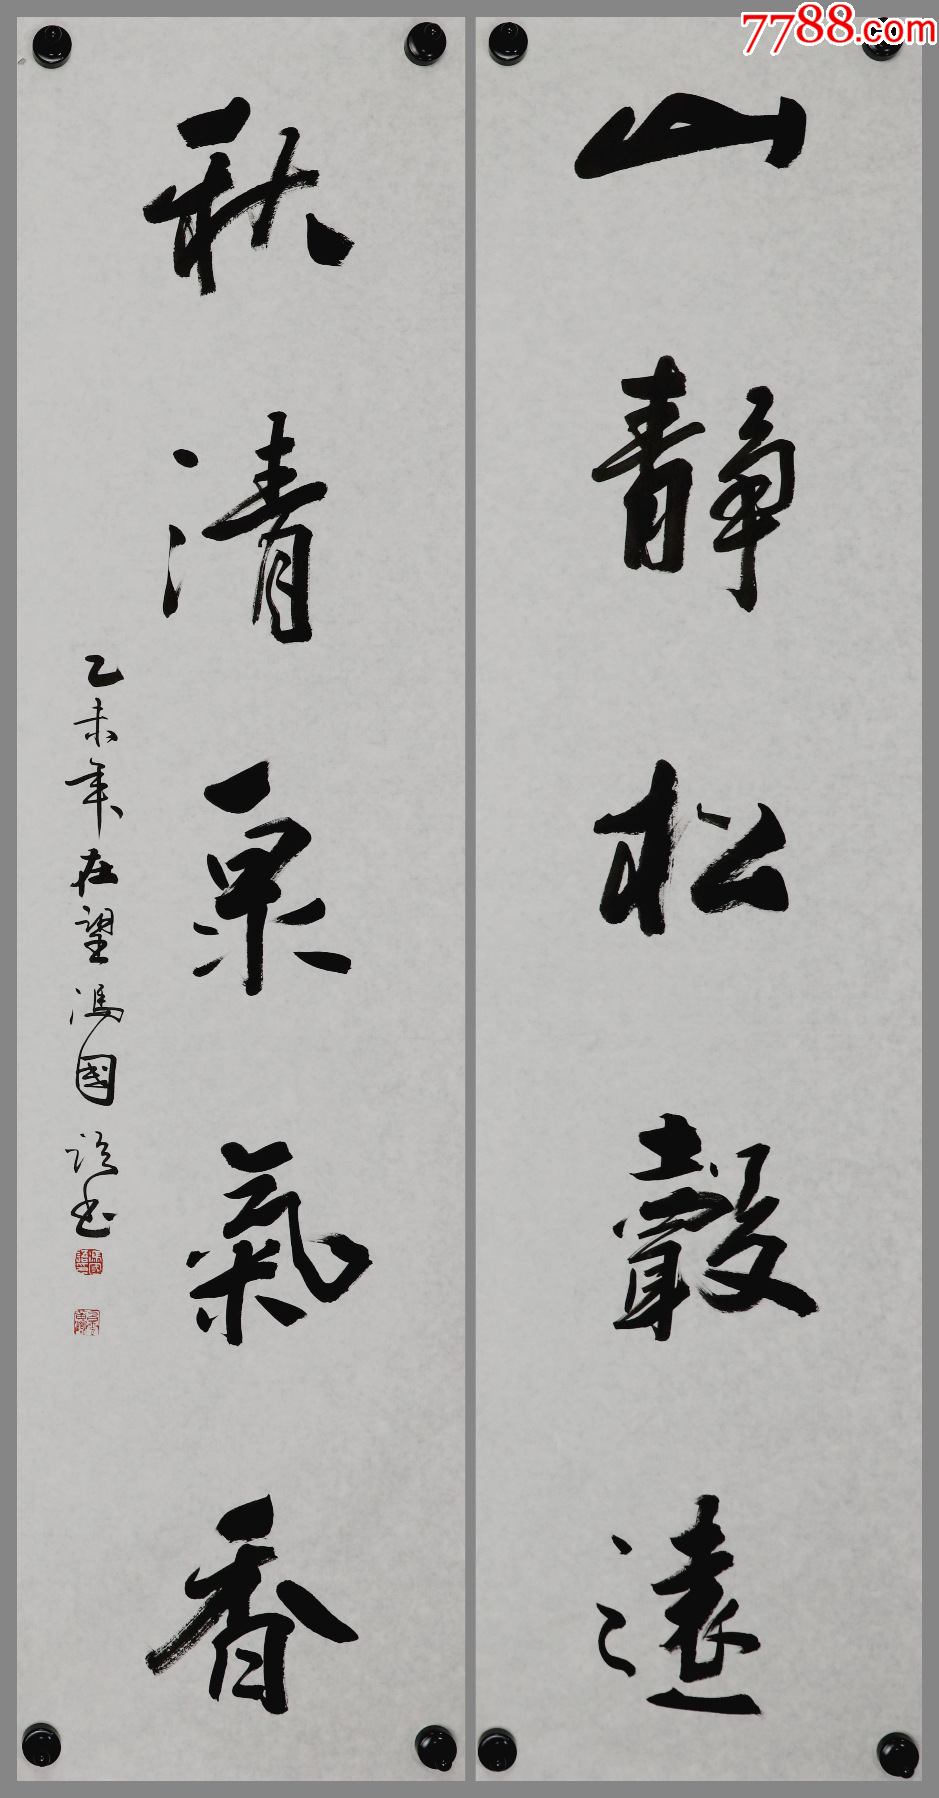 7788.com
山靜松聲遠
秋清泉氣香
乙未年在望馮國書